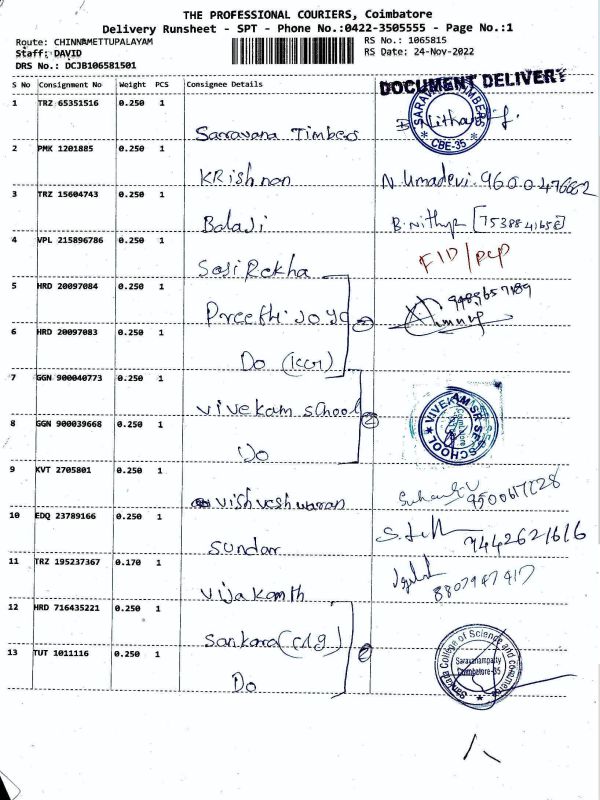 THE PROFESSIONAL COURIERS, Coimbatore
Delivery Runsheet - SPT - Phone No.:0422-3505555 - Page No.:1
Route: CHINNAMETTUPALAYAM
RS No.: 1065815
Staff: DAVID
RS Date: 24-Nov-2022
DRS No.: DCJB106581501
S No Consignment No Weight PCS Consignee Details DOCUMENT DELIVERY
1 TRZ 65351516 0.250 1 Saravana Timbers
SARAVANA TIMBERS * CBE-35 *
2 PMK 1201885 0.250 1 Krishnan N. Umadevi. 9600476662
3 TRZ 15604743 0.250 1 Balaji B. Nithya
4 VPL 215896786 0.250 1 Sasi Rekha
5 HRD 20097084 0.250 1 Preethi
6 HRD 20097083 0.250 1 Do
7 GGN 900040773 0.250 1 Vivekam School
VIVEKAM SR SEC SCHOOL
8 GGN 900039668 0.250 1 Do
9 KVT 2705801 0.250 1 Vishveshwaran
10 EDQ 23789166 0.250 1 Sundar 9442621616
11 TRZ 195237367 0.170 1 Vijakanth 8807947417
12 HRD 716435221 0.250 1 Sankara
Sankara College of Science and Commerce
Saravanampatty
Coimbatore-35
13 TUT 1011116 0.250 1 Do